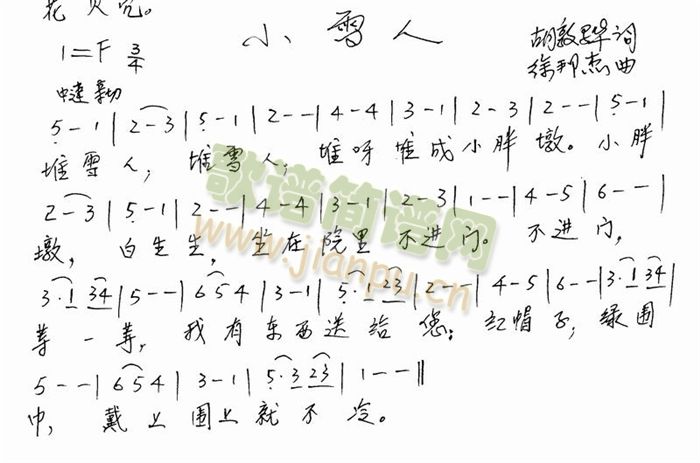 花
小雪人
1=F 3/4
胡敦骅词
徐邦杰曲
中速
5 - 1 | 2 - 3 | 5 - 1 | 2 - - | 4 - 4 | 3 - 1 | 2 - 3 | 2 - - | 5 - 1 |
堆雪人, 堆雪人, 堆呀堆成小胖墩。小胖
2 - 3 | 5 - 1 | 2 - - | 4 - 4 | 3 - 1 | 2 - 3 | 1 - - | 4 - 5 | 6 - - |
墩, 白生生, 坐在院里不进门。不进门,
3 · 1 3 4 | 5 - - | 6 5 4 | 3 - 1 | 5 · 1 2 3 | 2 - - | 4 - 5 | 6 - - | 3 · 1 3 4 |
等一等, 我有东西送给您; 红帽子, 绿围
5 - - | 6 5 4 | 3 - 1 | 5 · 3 2 3 | 1 - - ‖
巾, 戴上围上就不冷。
歌谱简谱网
www.jianpu.cn